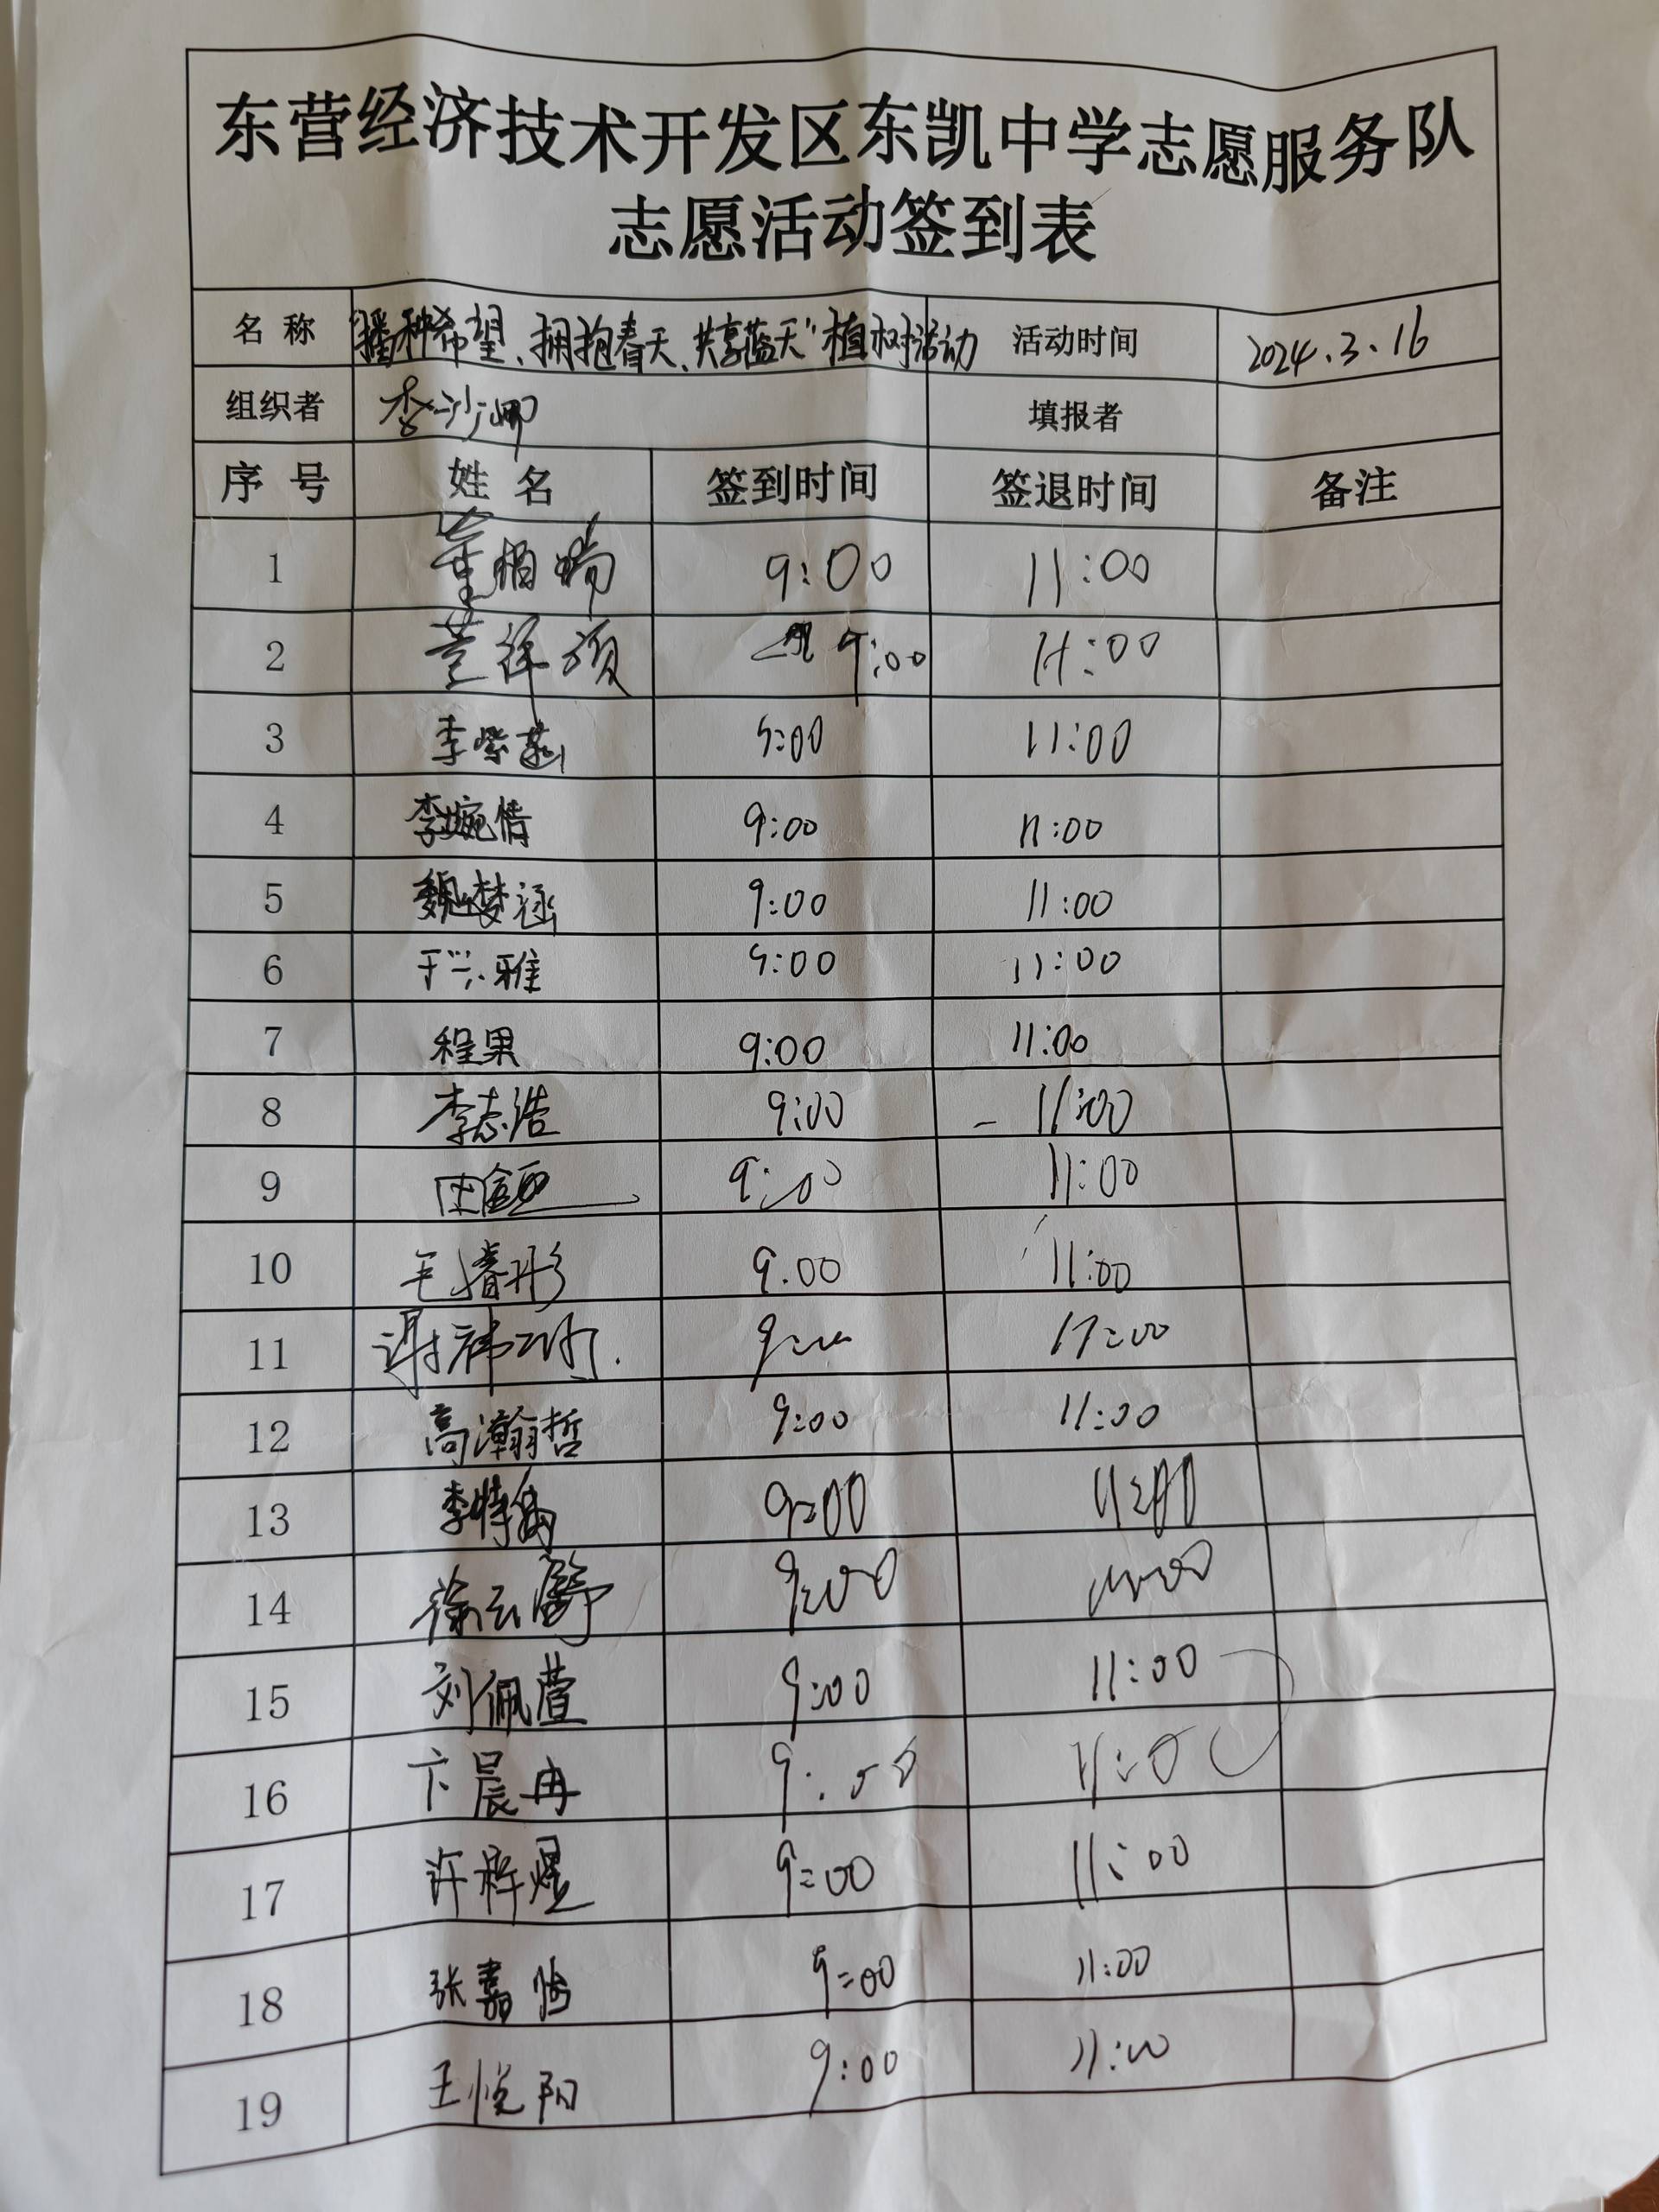 东营经济技术开发区东凯中学志愿服务队
志愿活动签到表
名称 "播种希望、拥抱春天、共享蓝天"植树活动 活动时间 2024.3.16
组织者 李沙娜 填报者
序号 姓名 签到时间 签退时间 备注
1 董柏瑞 9:00 11:00
2 董祥硕 9:00 11:00
3 李紫菡 9:00 11:00
4 李婉情 9:00 11:00
5 魏梦涵 9:00 11:00
6 于兴雅 9:00 11:00
7 程果 9:00 11:00
8 李志浩 9:00 11:00
9 9:00 11:00
10 毛睿彤 9.00 11:00
11 谢祎 9:00 11:00
12 高瀚哲 9:00 11:00
13 李 9:00 11:00
14 徐云舒 9:00 11:00
15 刘佩萱 9:00 11:00
16 卞晨冉 9:00 11:00
17 许梓煜 9:00 11:00
18 张嘉 9:00 11:00
19 王悦阳 9:00 11:00